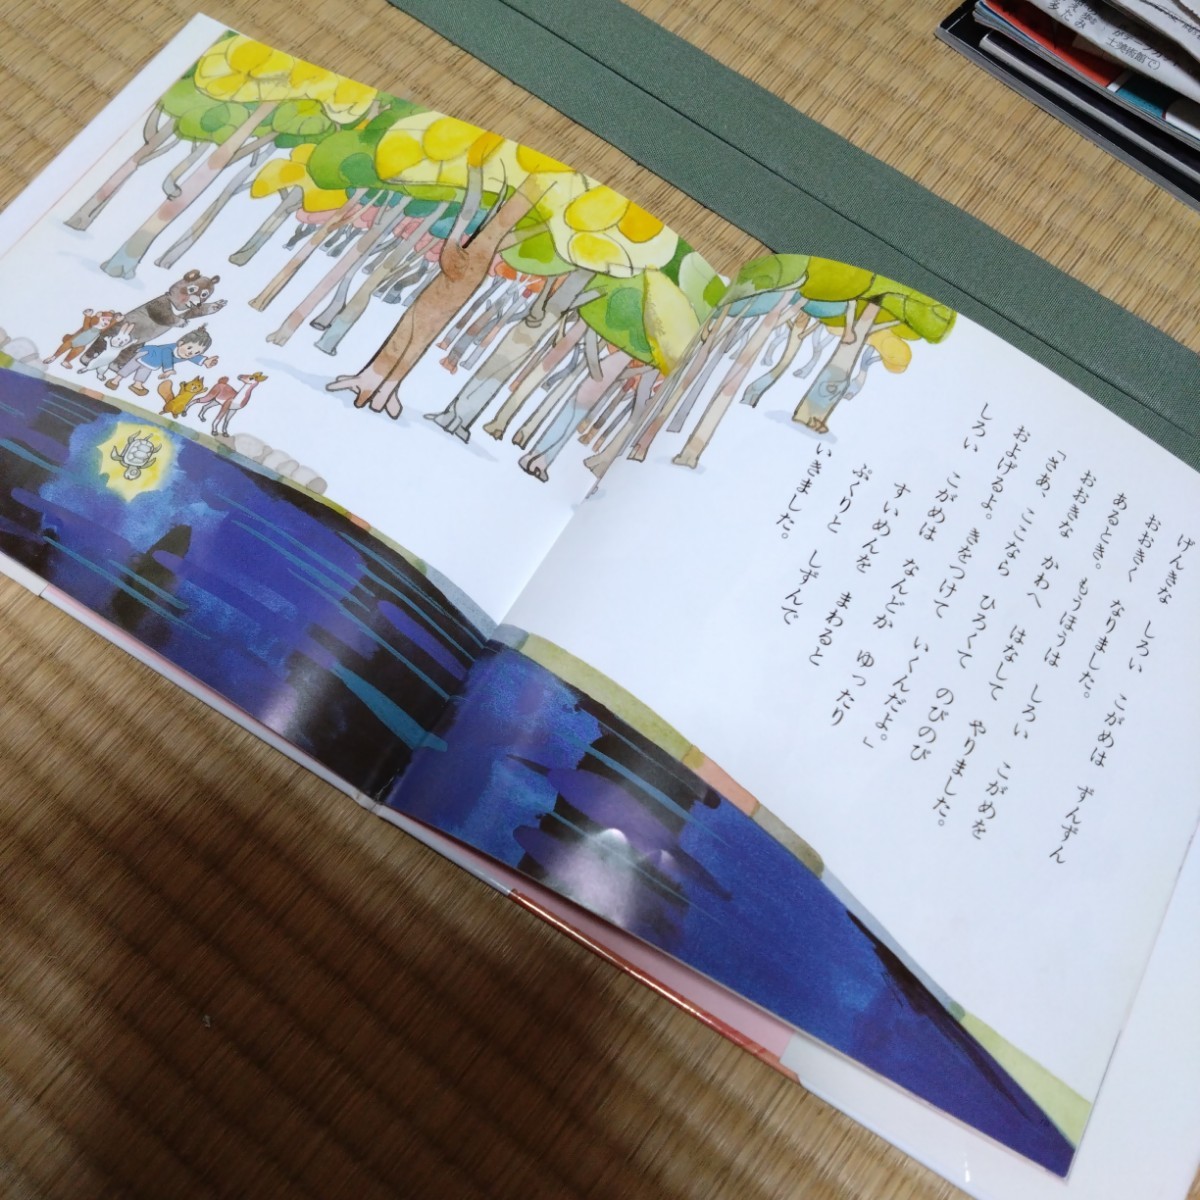 げんきな しろい こがめは ずんずん
おおきく なりました。
あるとき。もうほうは しろい こがめを
おおきな かわへ はなして やりました。
「さあ、ここなら ひろくて のびのび
およげるよ。きをつけて いくんだよ。」
しろい こがめは なんどか ゆったり
すいめんを まわると
ぷくりと しずんで
いきました。
士美術館で)